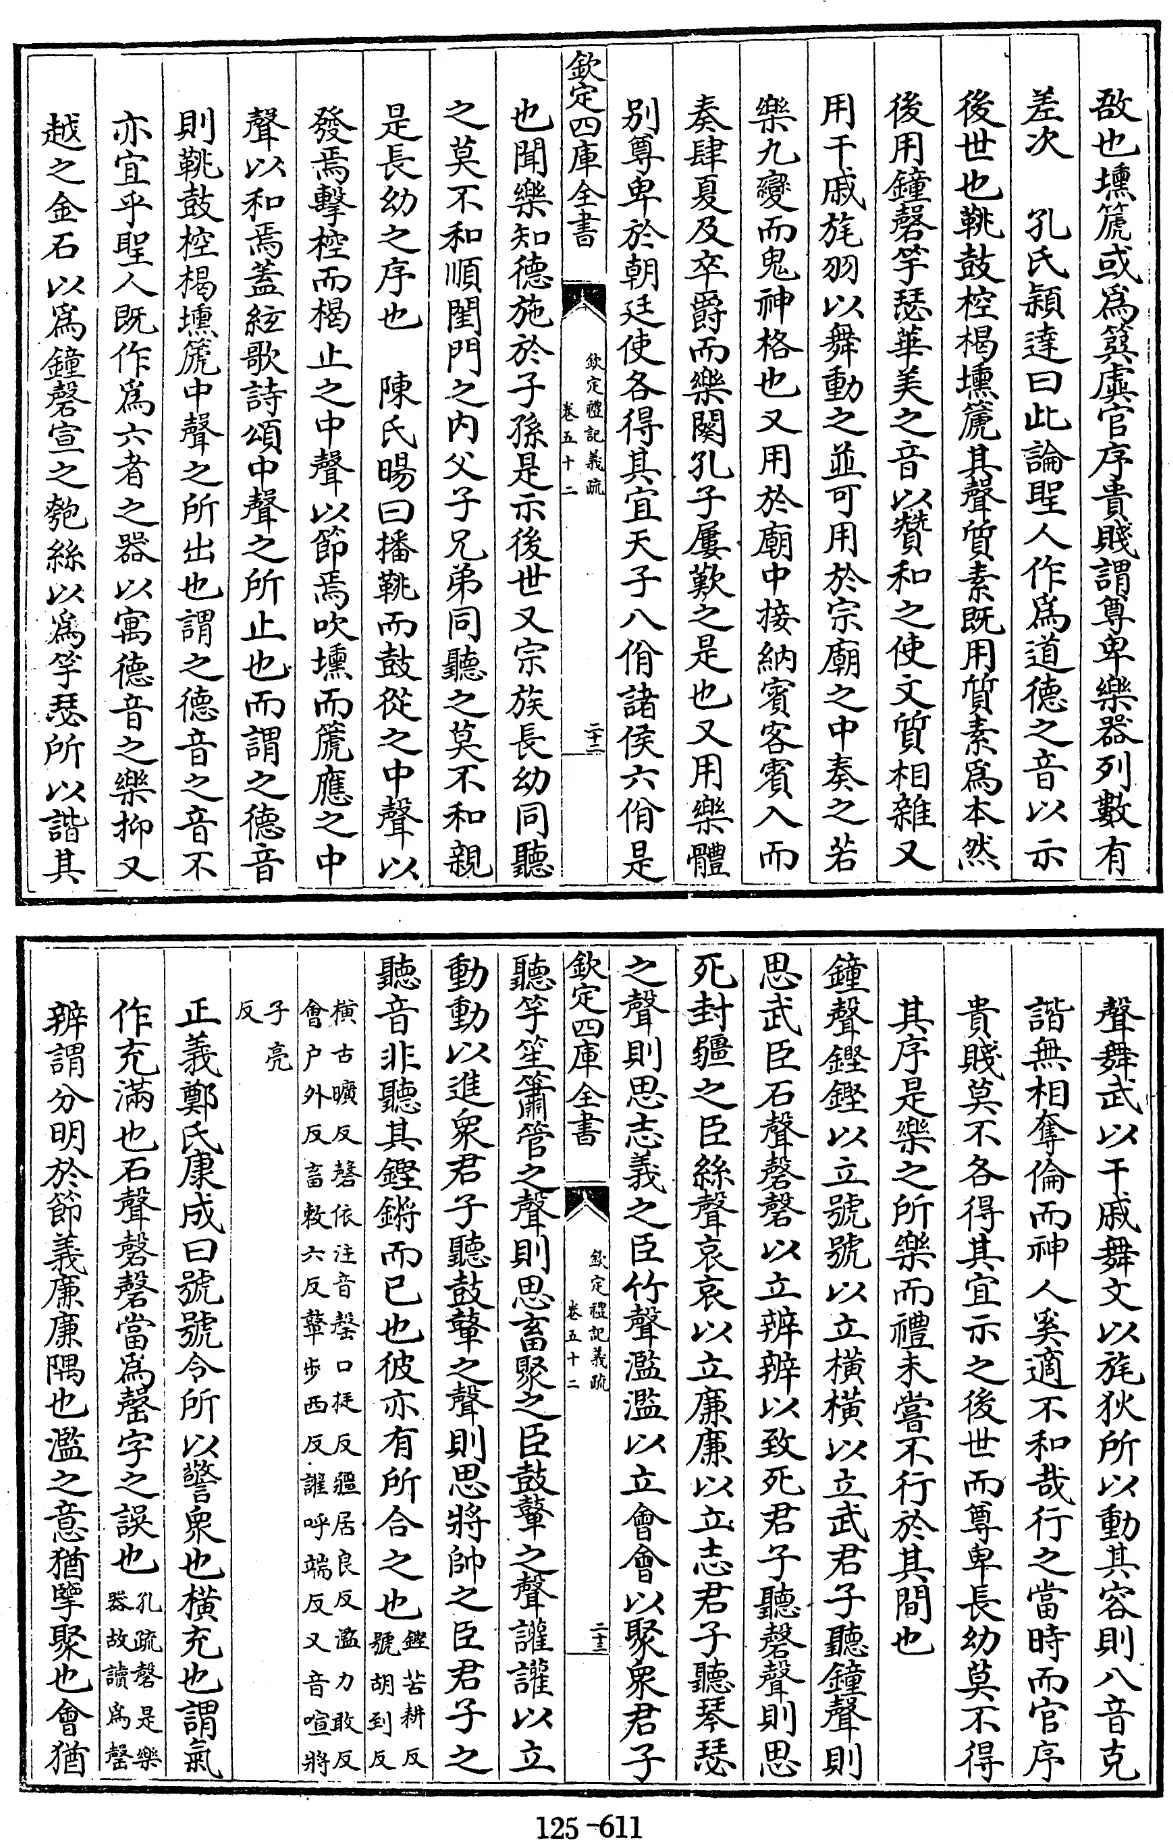 敔也壎箎或為簨虡官序貴賤謂尊卑樂器列數有
差次　孔氏穎達曰此論聖人作為道德之音以示
後世也鞉鼓椌楬壎箎其聲質素既用質素為本然
後用鐘磬竽瑟華美之音以贊和之使文質相雜又
用干戚旄羽以舞動之並可用於宗廟之中奏之若
樂九變而鬼神格也又用於廟中接納賓客賓入而
奏肆夏及卒爵而樂闋孔子屢歎之是也又用樂體
別尊卑於朝廷使各得其宜天子八佾諸侯六佾是
欽定四庫全書
欽定禮記義疏
卷五十二
二十二
也聞樂知德施於子孫是示後世又宗族長幼同聽
之莫不和順閨門之內父子兄弟同聽之莫不和親
是長幼之序也　陳氏暘曰播鞉而鼓從之中聲以
發焉擊椌而楬止之中聲以節焉吹壎而箎應之中
聲以和焉蓋絃歌詩頌中聲之所止也而謂之德音
則鞉鼓椌楬壎箎中聲之所出也謂之德音之音不
亦宜乎聖人既作為六者之器以寓德音之樂抑又
越之金石以為鐘磬宣之匏絲以為竽瑟所以諧其
聲舞武以干戚舞文以旄狄所以動其容則八音克
諧無相奪倫而神人奚適不和哉行之當時而官序
貴賤莫不各得其宜示之後世而尊卑長幼莫不得
其序是樂之所樂而禮未嘗不行於其間也
鐘聲鏗鏗以立號號以立橫橫以立武君子聽鐘聲則
思武臣石聲磬磬以立辨辨以致死君子聽磬聲則思
死封疆之臣絲聲哀哀以立廉廉以立志君子聽琴瑟
之聲則思志義之臣竹聲濫濫以立會會以聚衆君子
欽定四庫全書
欽定禮記義疏
卷五十二
二十三
聽竽笙簫管之聲則思畜聚之臣鼓鼙之聲讙讙以立
動動以進衆君子聽鼓鼙之聲則思將帥之臣君子之
聽音非聽其鏗鏘而已也彼亦有所合之也鏗苦耕反
號胡到反
橫古曠反磬依注音罄口挺反疆居良反濫力敢反
會户外反畜敕六反鼙步西反讙呼端反又音喧將
子亮
反
正義鄭氏康成曰號號令所以警衆也橫充也謂氣
作充滿也石聲磬磬當為罄字之誤也孔疏磬是樂
器故讀為罄
辨謂分明於節義廉廉隅也濫之意猶擥聚也會猶
125-611